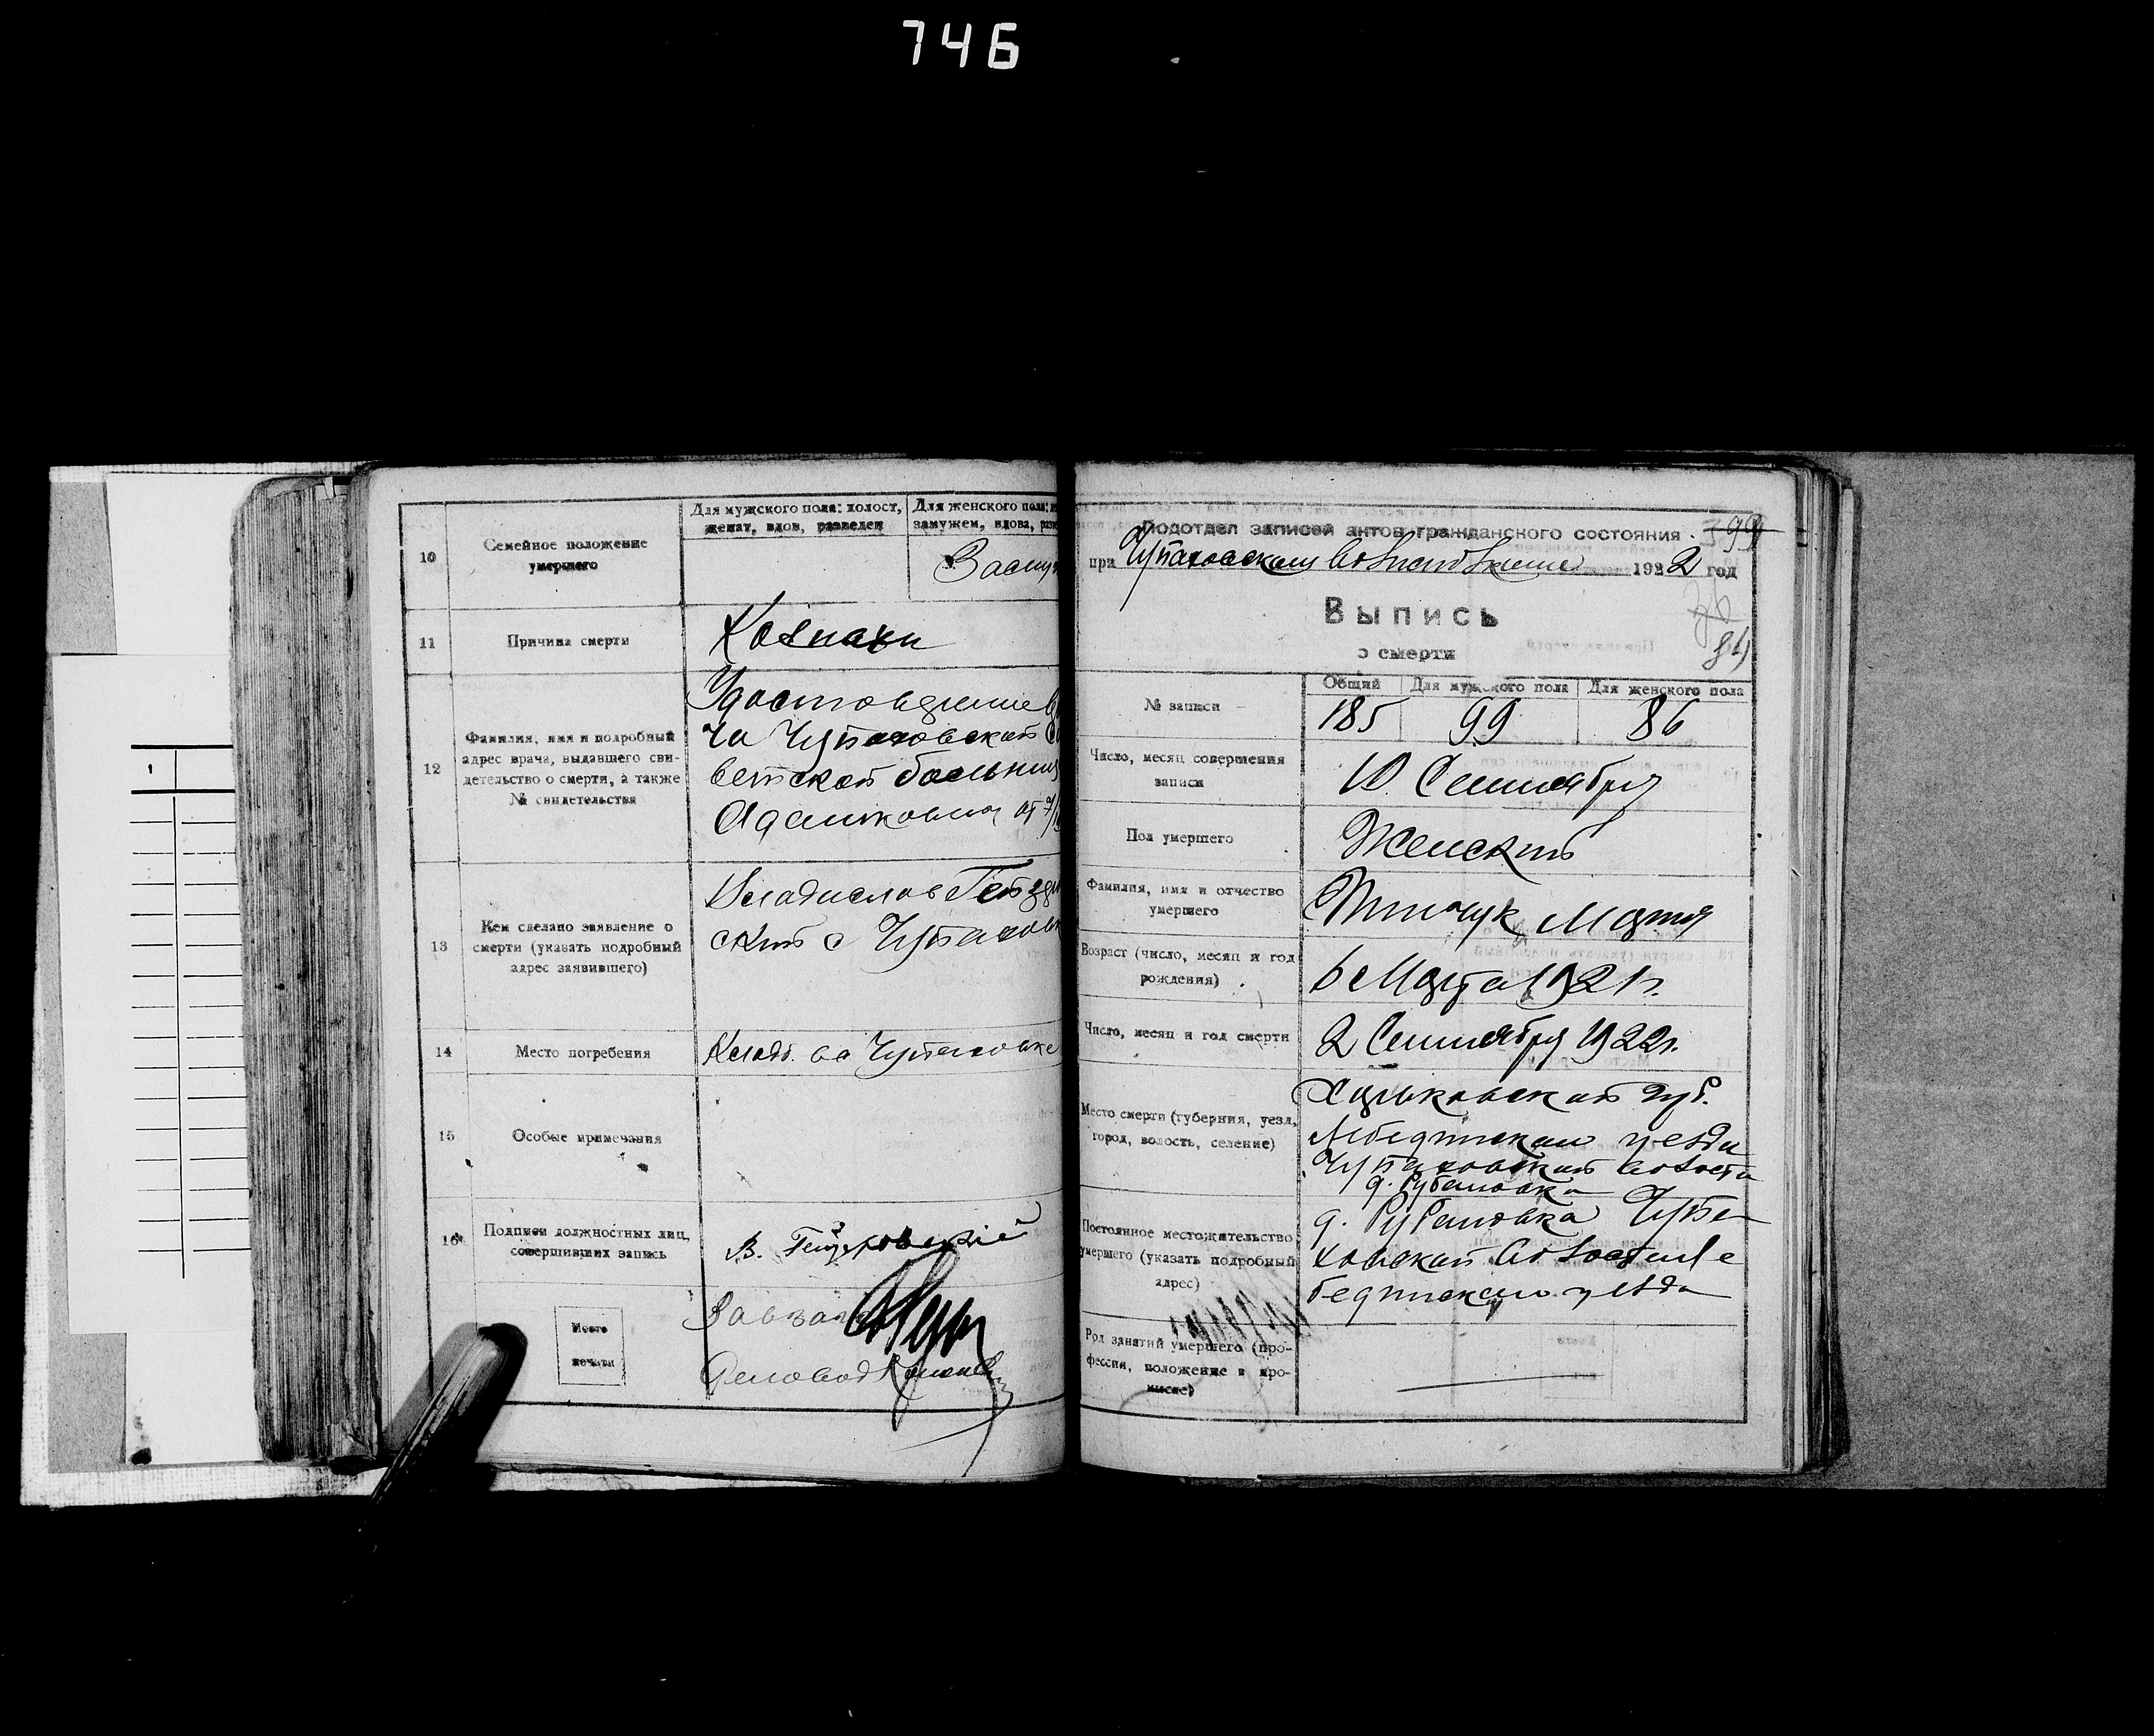 746
10
Семейное положение
умершего
Для мужского пола: холост,
женат, вдов, разведен
Для женского пола:
замужем, вдова,
Замуж
11
Причина смерти
12
Фамилия, имя и подробный
адрес врача, выдавшего сви-
детельство о смерти, а также
№ свидетельства
Удостоверение в
ча Чупаховской Со
ветской больниц
от 7/
13
Кем сделано заявление о
смерти (указать подробный
адрес заявившего)
Владислав
ский с Чупаховк
14
Место погребения
Кладб. в Чупаховке
15
Особые примечания
16
Подписи должностных лиц,
совершивших запись
В.
Место
печати
Завзаг
Деловод
Подотдел записей актов гражданского состояния
399
при Чупаховском Волисполкоме 1922 год
36
84
Выпись
о смерти
№ записи
Общий
Для мужского пола
Для женского пола
185
99
86
Число, месяц совершения
записи
10 Сентября
Пол умершего
Женский
Фамилия, имя и отчество
умершего
Мария
Возраст (число, месяц и год
рождения)
6 Марта 1921 г.
Число, месяц и год смерти
2 Сентября 1922 г.
Место смерти (губерния, уезд,
город, волость, селение)
Харьковской губ.
Лебединского уезда
Чупаховской волости
д. Рубановка
Постоянное местожительство
умершего (указать подробный
адрес)
д. Рубановка Чупа-
ховской волости Ле
бединского уезда
Род занятий умершего (про-
фессия, положение в про-
мысле)
1